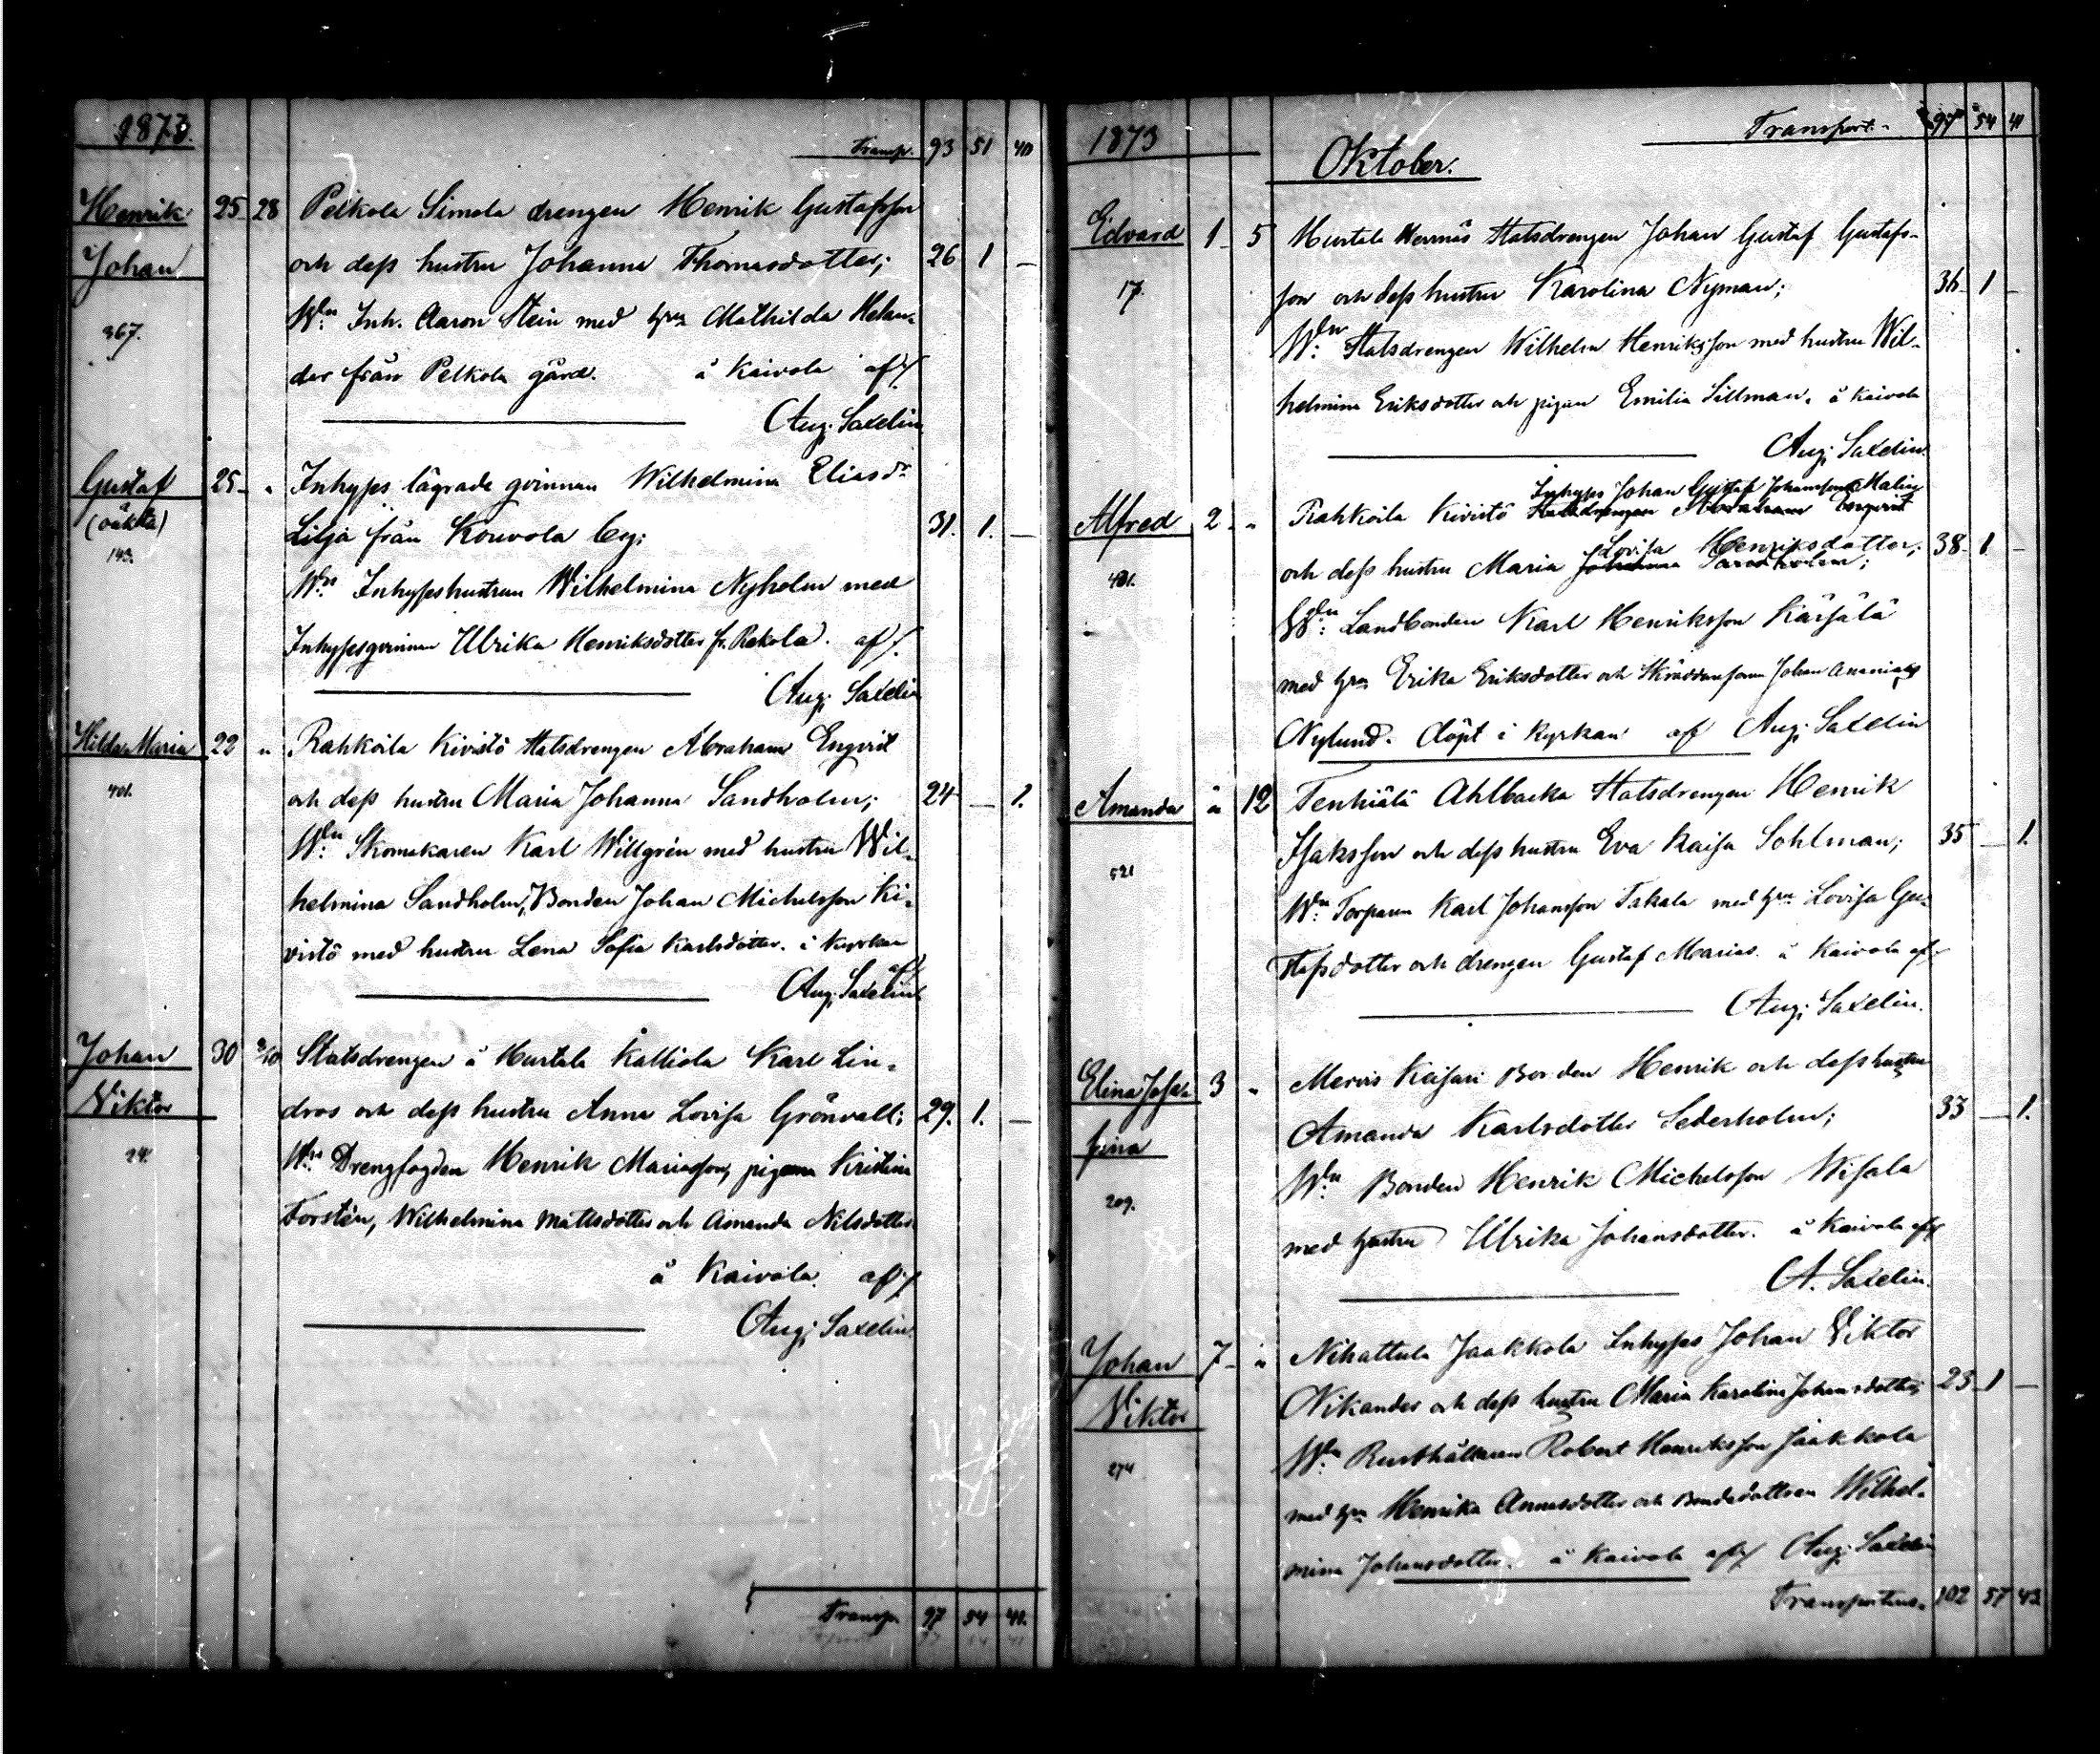 1873.
Transp. 93 51 40
Henrik 25 28 Pelkola Simola drengen Henrik Gustafsson
Johan och dess hustru Johanna Thomasdotter; 26 1 —
367. Wdn: Inh. Aaron Stein med hru Mathilda Helan-
der från Pelkola gård. å Kaivola af
Aug. Saxelin
Gustaf 25 „ Inhyses lägrade qvinnan Wilhelmina Eliasdr
(oäkta) Lilja från Kouvola by; 31. 1. —
143. Wdn Inhyseshustrun Wilhelmina Nyholm med
Inhysesqvinnan Ulrika Henriksdotter fr. Rekola. af
Aug. Saxelin
Hilda Maria 22 „ Rahkoila Kivistö Statsdrengen Abraham Engvist
401. och dess hustru Maria Johanna Sandholm; 24 — 1.
Wdn: Skomakaren Karl Willgrén med hustru Wil-
helmina Sandholm, Bonden Johan Michelsson Ki-
vistö med hustru Lena Sofia Karlsdotter. i Kyrkan
af Aug. Saxelin
Johan 30 2/10 Statsdrengen å Hurtala Kalliola Karl Lin-
Viktor dros och dess hustru Anna Lovisa Grönvall; 29. 1. —
24. Wdn Drengfogden Henrik Mariasson, pigorna Kristina
Forstén, Wilhelmina Mattsdotter och Amanda Nilsdotter
å Kaivola. af
Aug. Saxelin.
Transp. 97 54 41.
1873 Transport. 97 54 41
Oktober.
Edvard 1 5 Hurtala Statsdrengen Johan Gustaf Gustafs-
17. son och dess hustru Karolina Nyman; 36 1 —
Wdn: Statsdrengen Wilhelm Henriksson med hustru Wil-
helmina Eriksdotter och pigan Emilia Sillman. å Kaivola
Aug. Saxelin
Inhyses Johan Gustaf Johansson Malin
Alfred 2 „ Rahkoila Kivistö Statsdrengen Abraham Engvist
Lovisa Henriksdotter;
401. och dess hustru Maria Johanna Sandholm; 38 1 —
Wdn: Landbonden Karl Henriksson Kärjälä
med hru Erika Eriksdotter och Skräddaren Johan
Nylund. döpt i Kyrkan af Aug. Saxelin
Amanda „ 12 Tenhiälä Ahlbacka Statsdrengen Henrik
521 Isaksson och dess hustru Eva Kaisa Sohlman; 35 — 1.
Wdn Torparn Karl Johansson Takala med hru Lovisa Gu-
stafsdotter och drengen Gustaf Marias. å Kaivola af
Aug. Saxelin.
Elina Jose- 3 „ Mervis Keisari Bonden Henrik och dess hustru
fina Amanda Karlsdotter Sederholm; 33 — 1.
209. Wdn Bonden Henrik Michelsson Wisala
med hustru Ulrika Johansdotter. å Kaivola af
A. Saxelin.
Johan 7 „ Nihattula Jaakkola Inhyses Johan Viktor
Viktor Nikander och dess hustru Maria Karolina Johansdotter; 23 1 —
274 Wdn Rusthållaren Robert Henriksson Jaakkola
med hru Henrika Annasdotter och Bondedottren Wilhel-
mina Johansdotter. å Kaivola af Aug. Saxelin
102 57 43